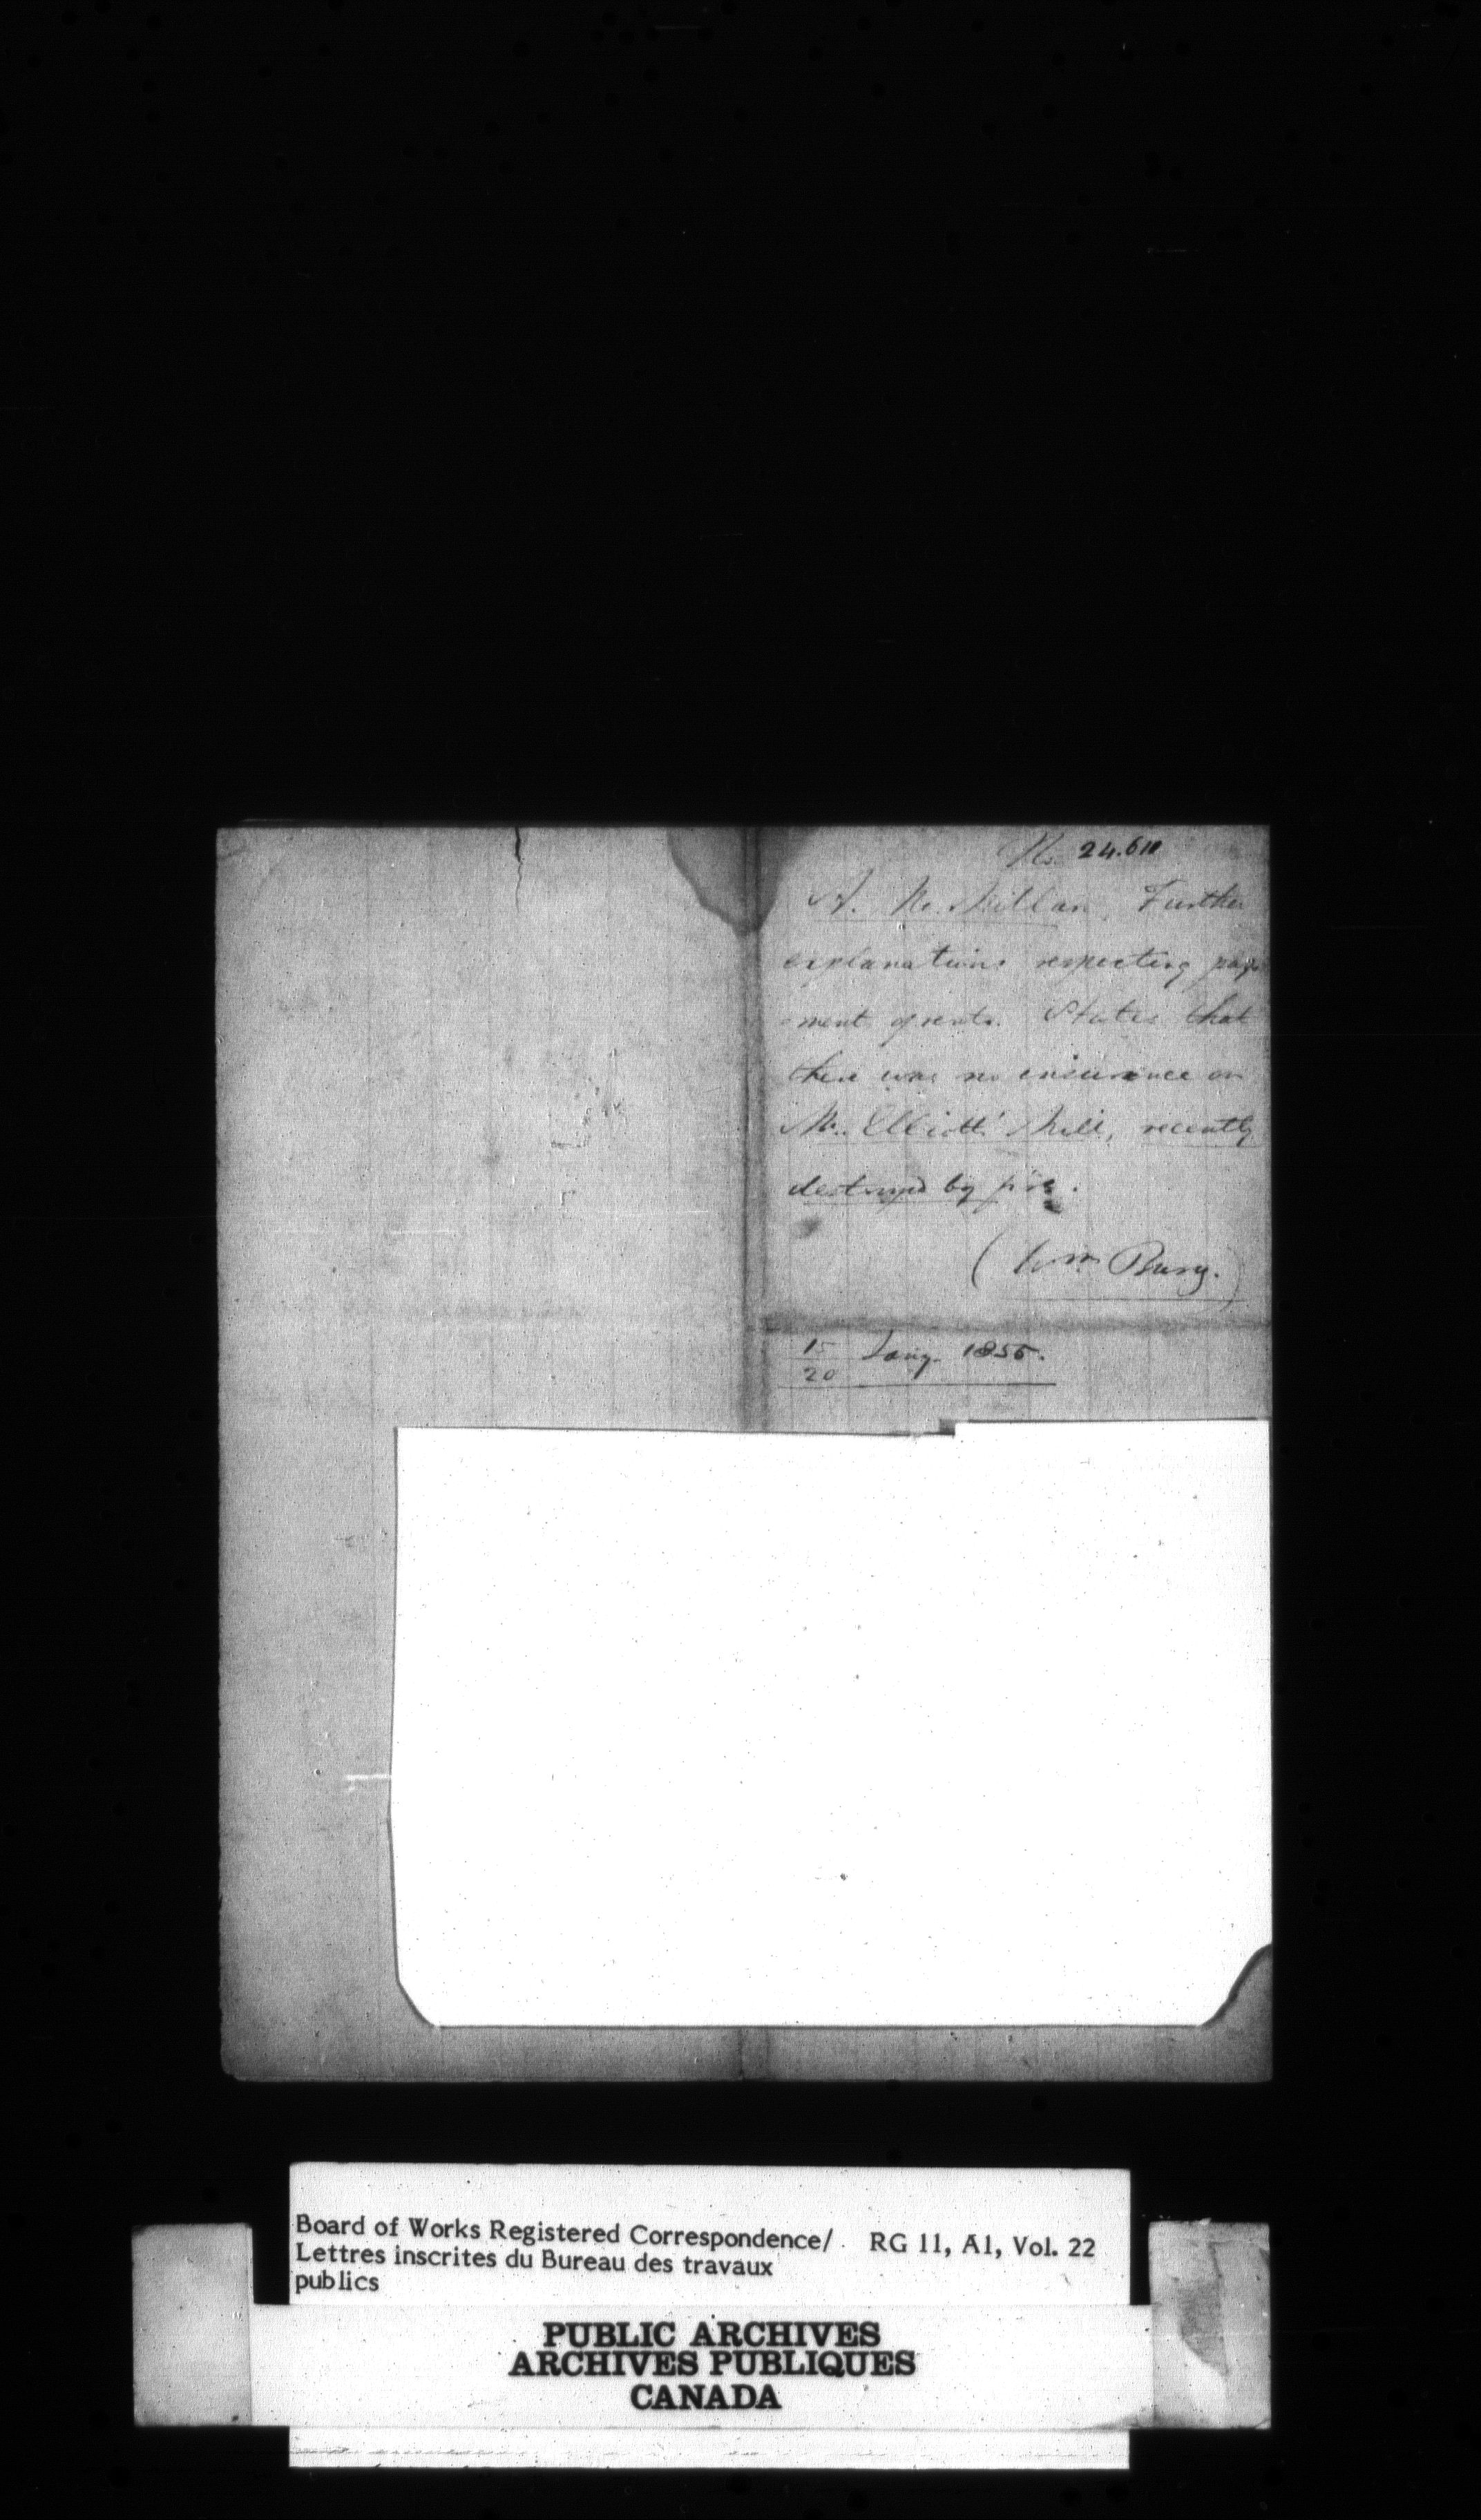 No. 24.610
A. McMillan, Further
explanations respecting pay-
-ment of rents. States that
there was no insurance on
Mr. Elliott' Mill, recently
destroyed by fire.
(Wm
15 Jany. 1855.
20
Board of Works Registered Correspondence/ RG 11, A1, Vol. 22
Lettres inscrites du Bureau des travaux
publics
PUBLIC ARCHIVES
ARCHIVES PUBLIQUES
CANADA